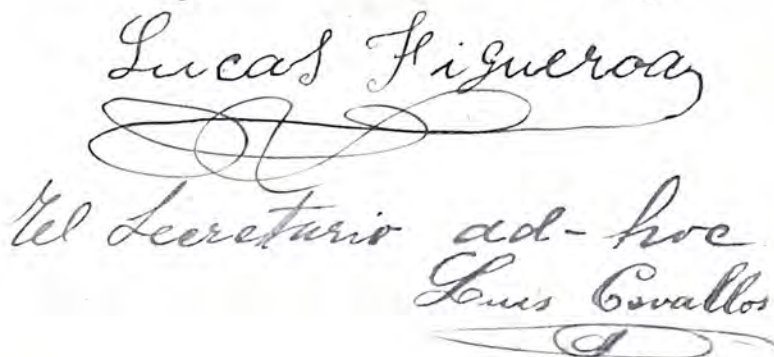 Lucas Figueroa
El Secretario ad-hoc
Luis Cevallos